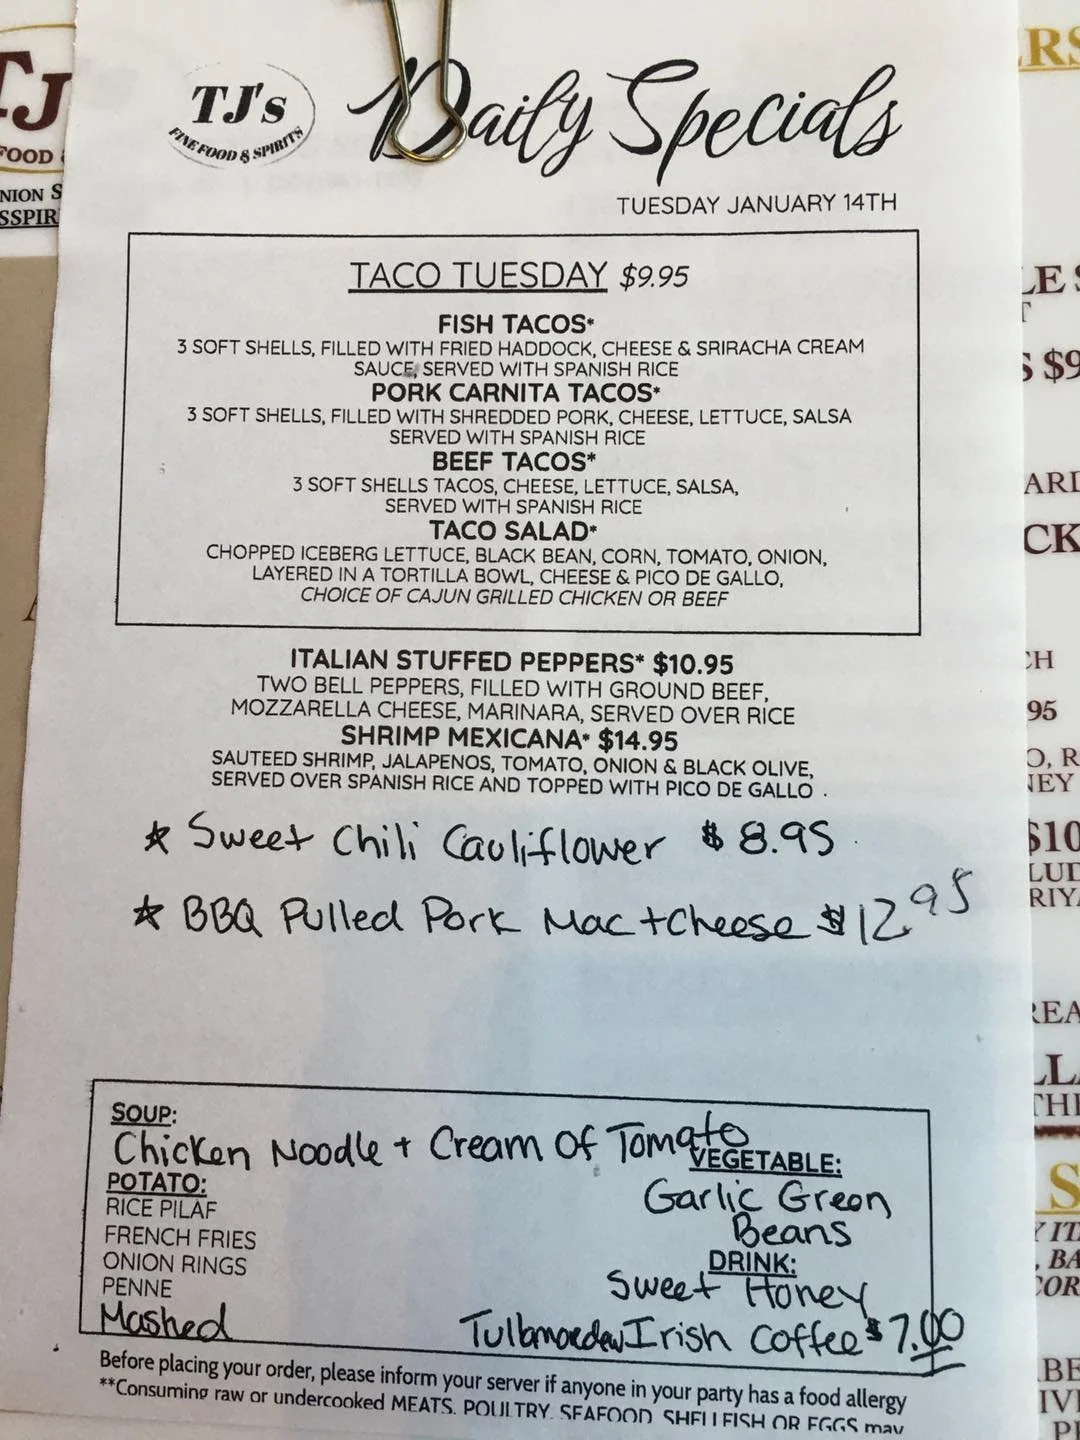 TJ's
FINE FOOD & SPIRITS
Daily Specials
TUESDAY JANUARY 14TH
TACO TUESDAY $9.95
FISH TACOS*
3 SOFT SHELLS, FILLED WITH FRIED HADDOCK, CHEESE & SRIRACHA CREAM
SAUCE, SERVED WITH SPANISH RICE
PORK CARNITA TACOS*
3 SOFT SHELLS, FILLED WITH SHREDDED PORK, CHEESE, LETTUCE, SALSA
SERVED WITH SPANISH RICE
BEEF TACOS*
3 SOFT SHELLS TACOS, CHEESE, LETTUCE, SALSA,
SERVED WITH SPANISH RICE
TACO SALAD*
CHOPPED ICEBERG LETTUCE, BLACK BEAN, CORN, TOMATO, ONION,
LAYERED IN A TORTILLA BOWL, CHEESE & PICO DE GALLO,
CHOICE OF CAJUN GRILLED CHICKEN OR BEEF
ITALIAN STUFFED PEPPERS* $10.95
TWO BELL PEPPERS, FILLED WITH GROUND BEEF,
MOZZARELLA CHEESE, MARINARA, SERVED OVER RICE
SHRIMP MEXICANA* $14.95
SAUTEED SHRIMP, JALAPENOS, TOMATO, ONION & BLACK OLIVE,
SERVED OVER SPANISH RICE AND TOPPED WITH PICO DE GALLO .
☆ Sweet Chili Cauliflower $8.95
☆ BBQ Pulled Pork Mac + Cheese $12.95
SOUP:
Chicken Noodle + Cream Of Tomato
POTATO:
RICE PILAF
FRENCH FRIES
ONION RINGS
PENNE
Mashed
VEGETABLE:
Garlic Green
Beans
DRINK:
Sweet Honey
Irish Coffee $7.00
Before placing your order, please inform your server if anyone in your party has a food allergy
**Consuming raw or undercooked MEATS, POULTRY, SEAFOOD, SHELLFISH OR EGGS may